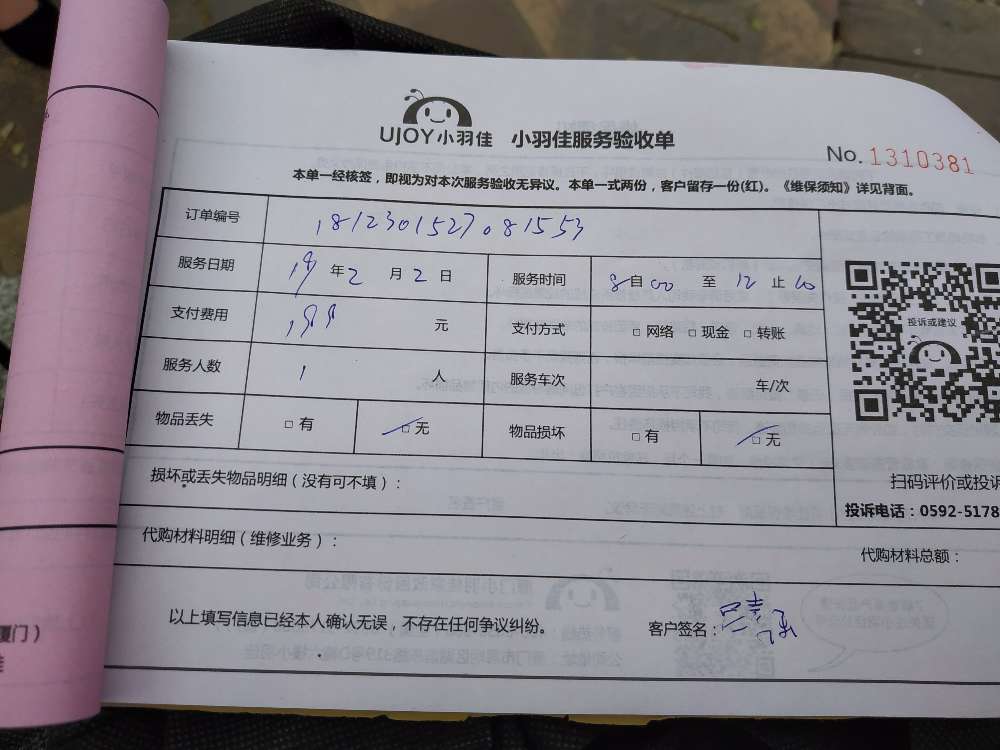 UJOY小羽佳 小羽佳服务验收单
No. 1310381
本单一经核签，即视为对本次服务验收无异议。本单一式两份，客户留存一份(红)。《维保须知》详见背面。
订单编号 1812301527081553
服务日期 19年2月2日 服务时间 8自00至12止00
支付费用 199元 支付方式 □网络 □现金 □转账
服务人数 1人 服务车次 车/次
物品丢失 □有 □无 物品损坏 □有 □无
投诉或建议
扫码评价或投诉
损坏或丢失物品明细（没有可不填）：
投诉电话：0592-5178
代购材料明细（维修业务）：
代购材料总额：
以上填写信息已经本人确认无误，不存在任何争议纠纷。
客户签名：
厦门）